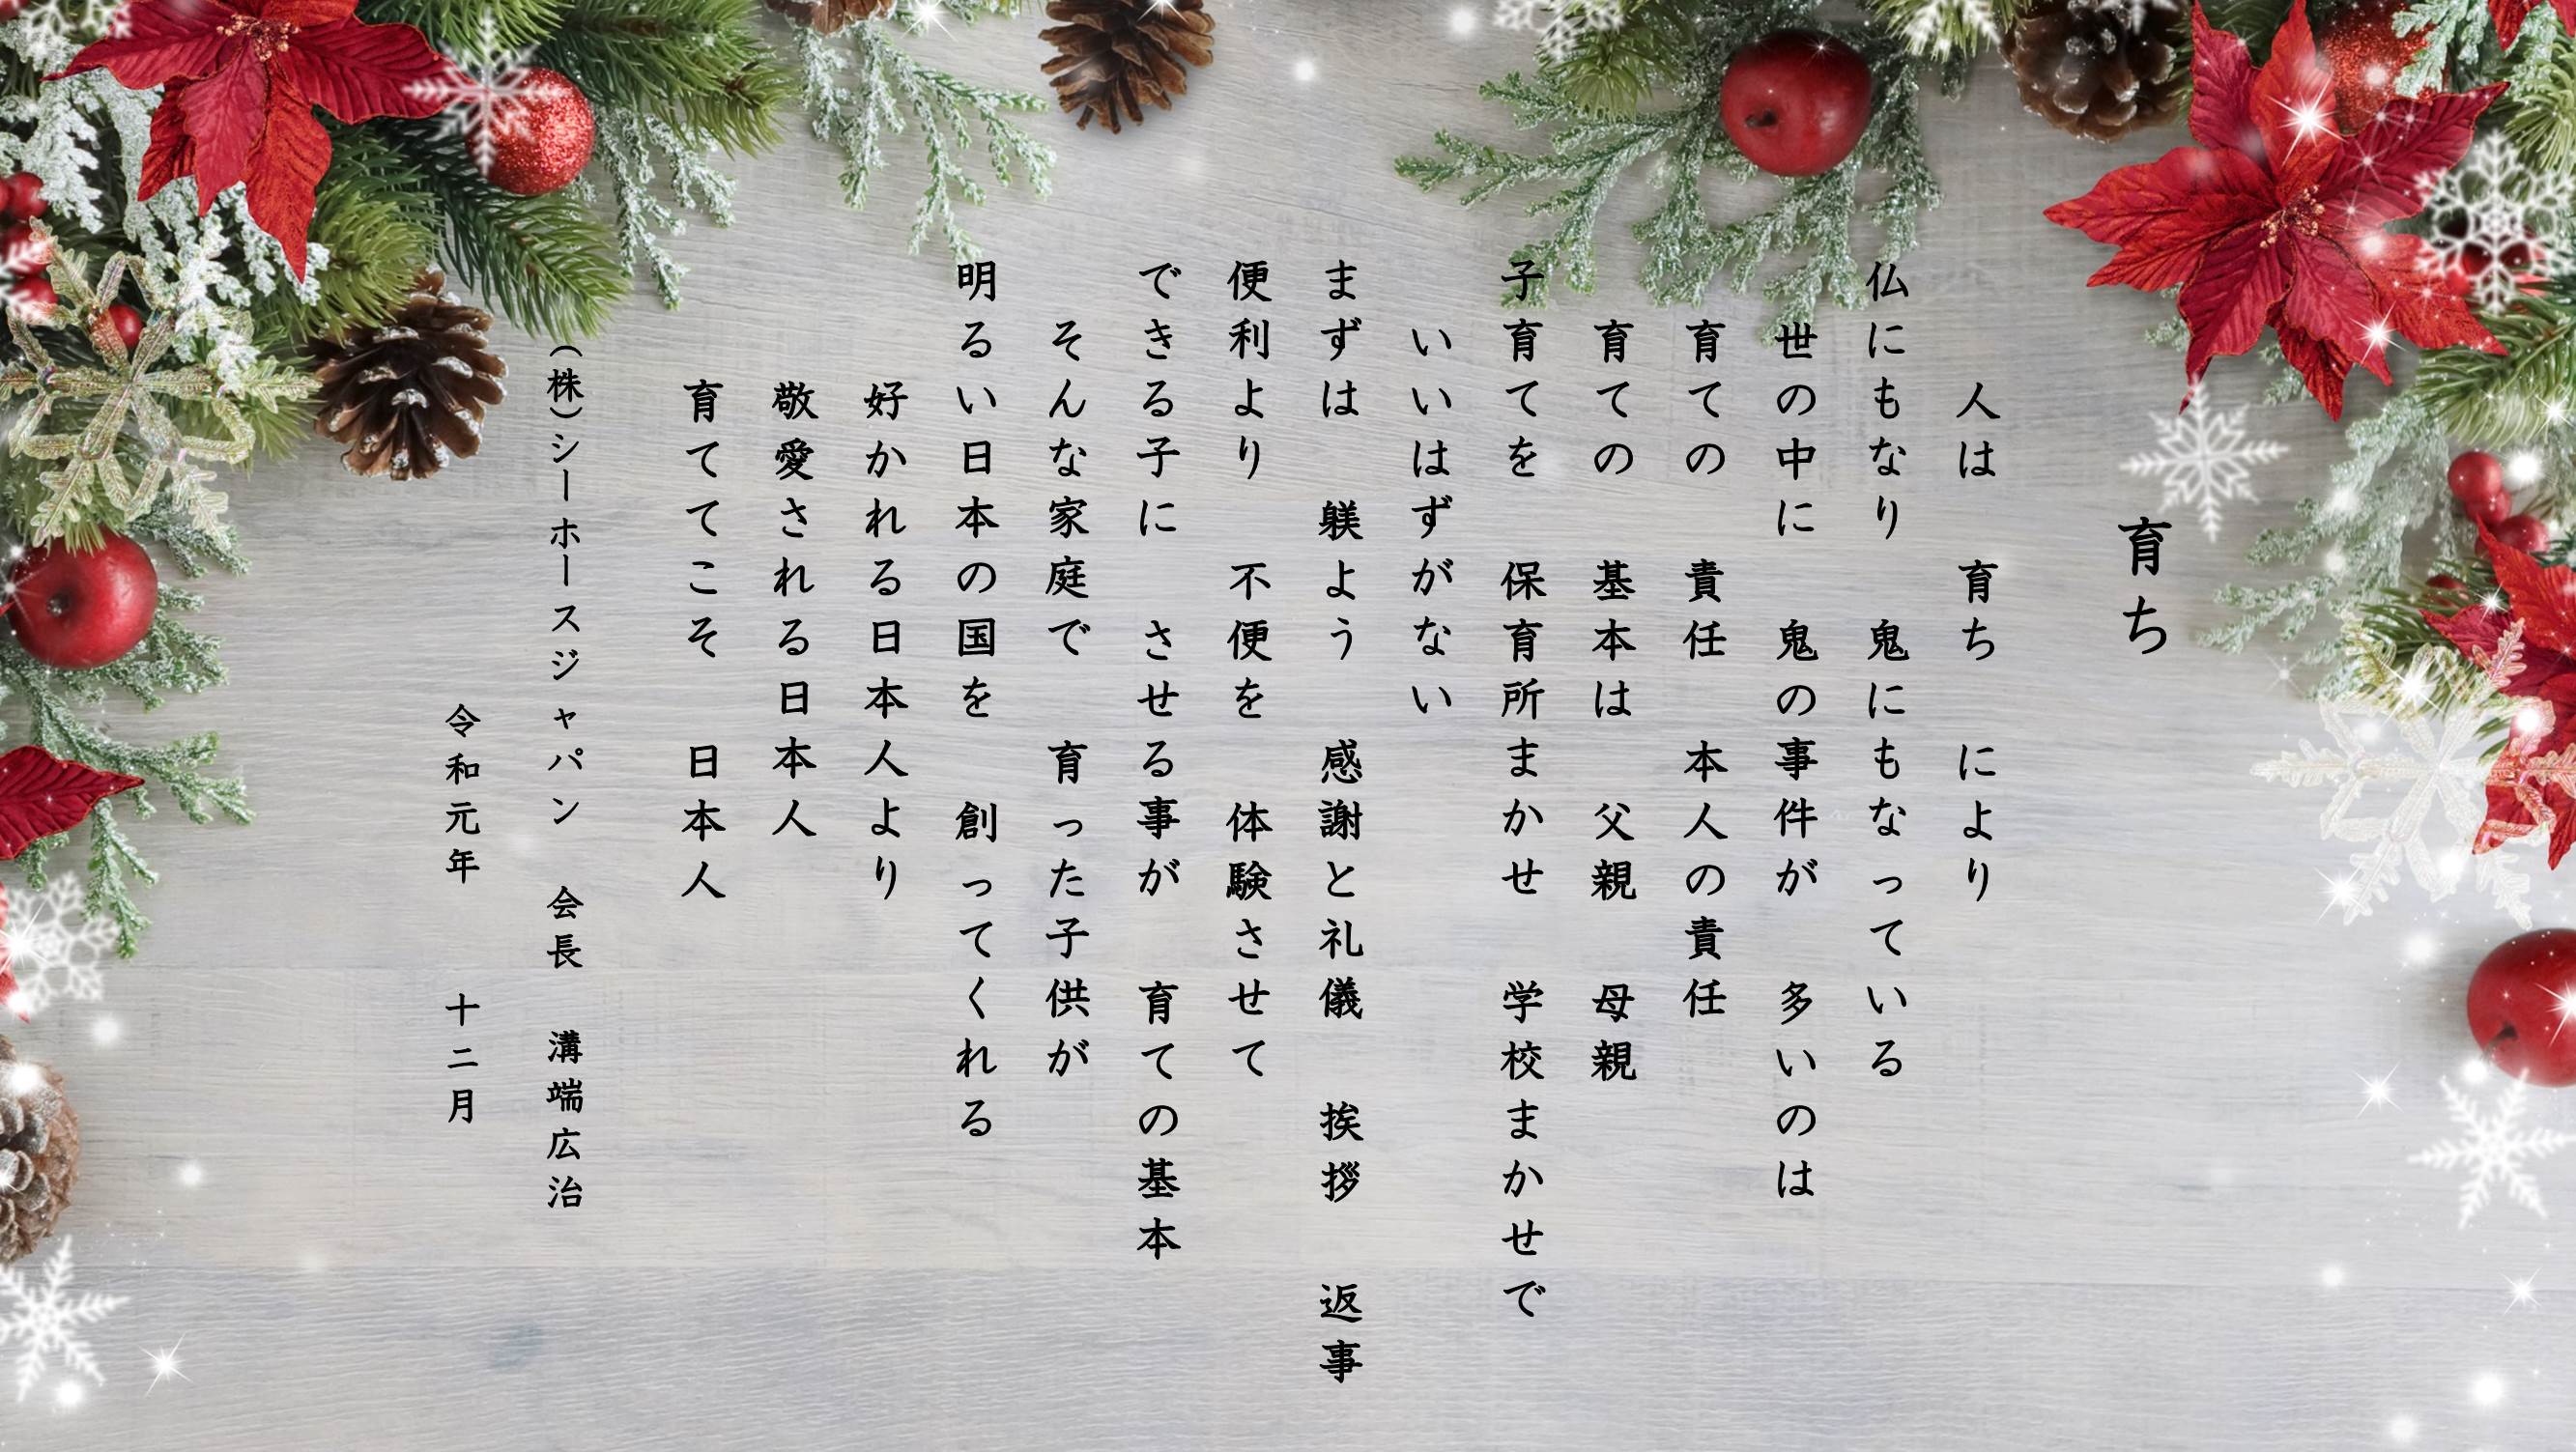 育ち
人は　育ち　により
仏にもなり　鬼にもなっている
世の中に　鬼の事件が　多いのは
育ての　責任　本人の責任
育ての　基本は　父親　母親
子育てを　保育所まかせ　学校まかせで
いいはずがない
まずは　躾よう　感謝と礼儀　挨拶　返事
便利より　不便を　体験させて
できる子に　させる事が　育ての基本
そんな家庭で　育った子供が
明るい日本の国を　創ってくれる
好かれる日本人より
敬愛される日本人
育ててこそ　日本人
（株）シーホースジャパン　会長　溝端広治
令和元年　　十二月